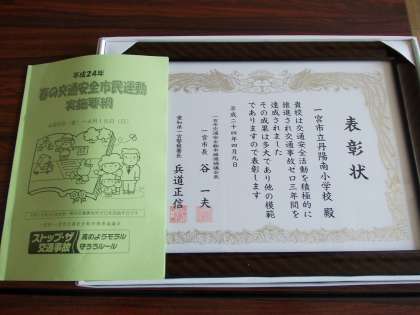 平成24年
春の交通安全市民運動
実施要綱
ストップ・ザ
交通事故
高めようモラル
守ろうルール
表彰状
一宮市立丹陽南小学校 殿
貴校は交通安全活動を積極的に
推進され交通事故ゼロ三年間を
達成されました
その成果は多大であり他の模範
でありますので表彰します
平成二十四年四月九日
一宮市長 谷 一夫
愛知県一宮警察署長 兵道正信